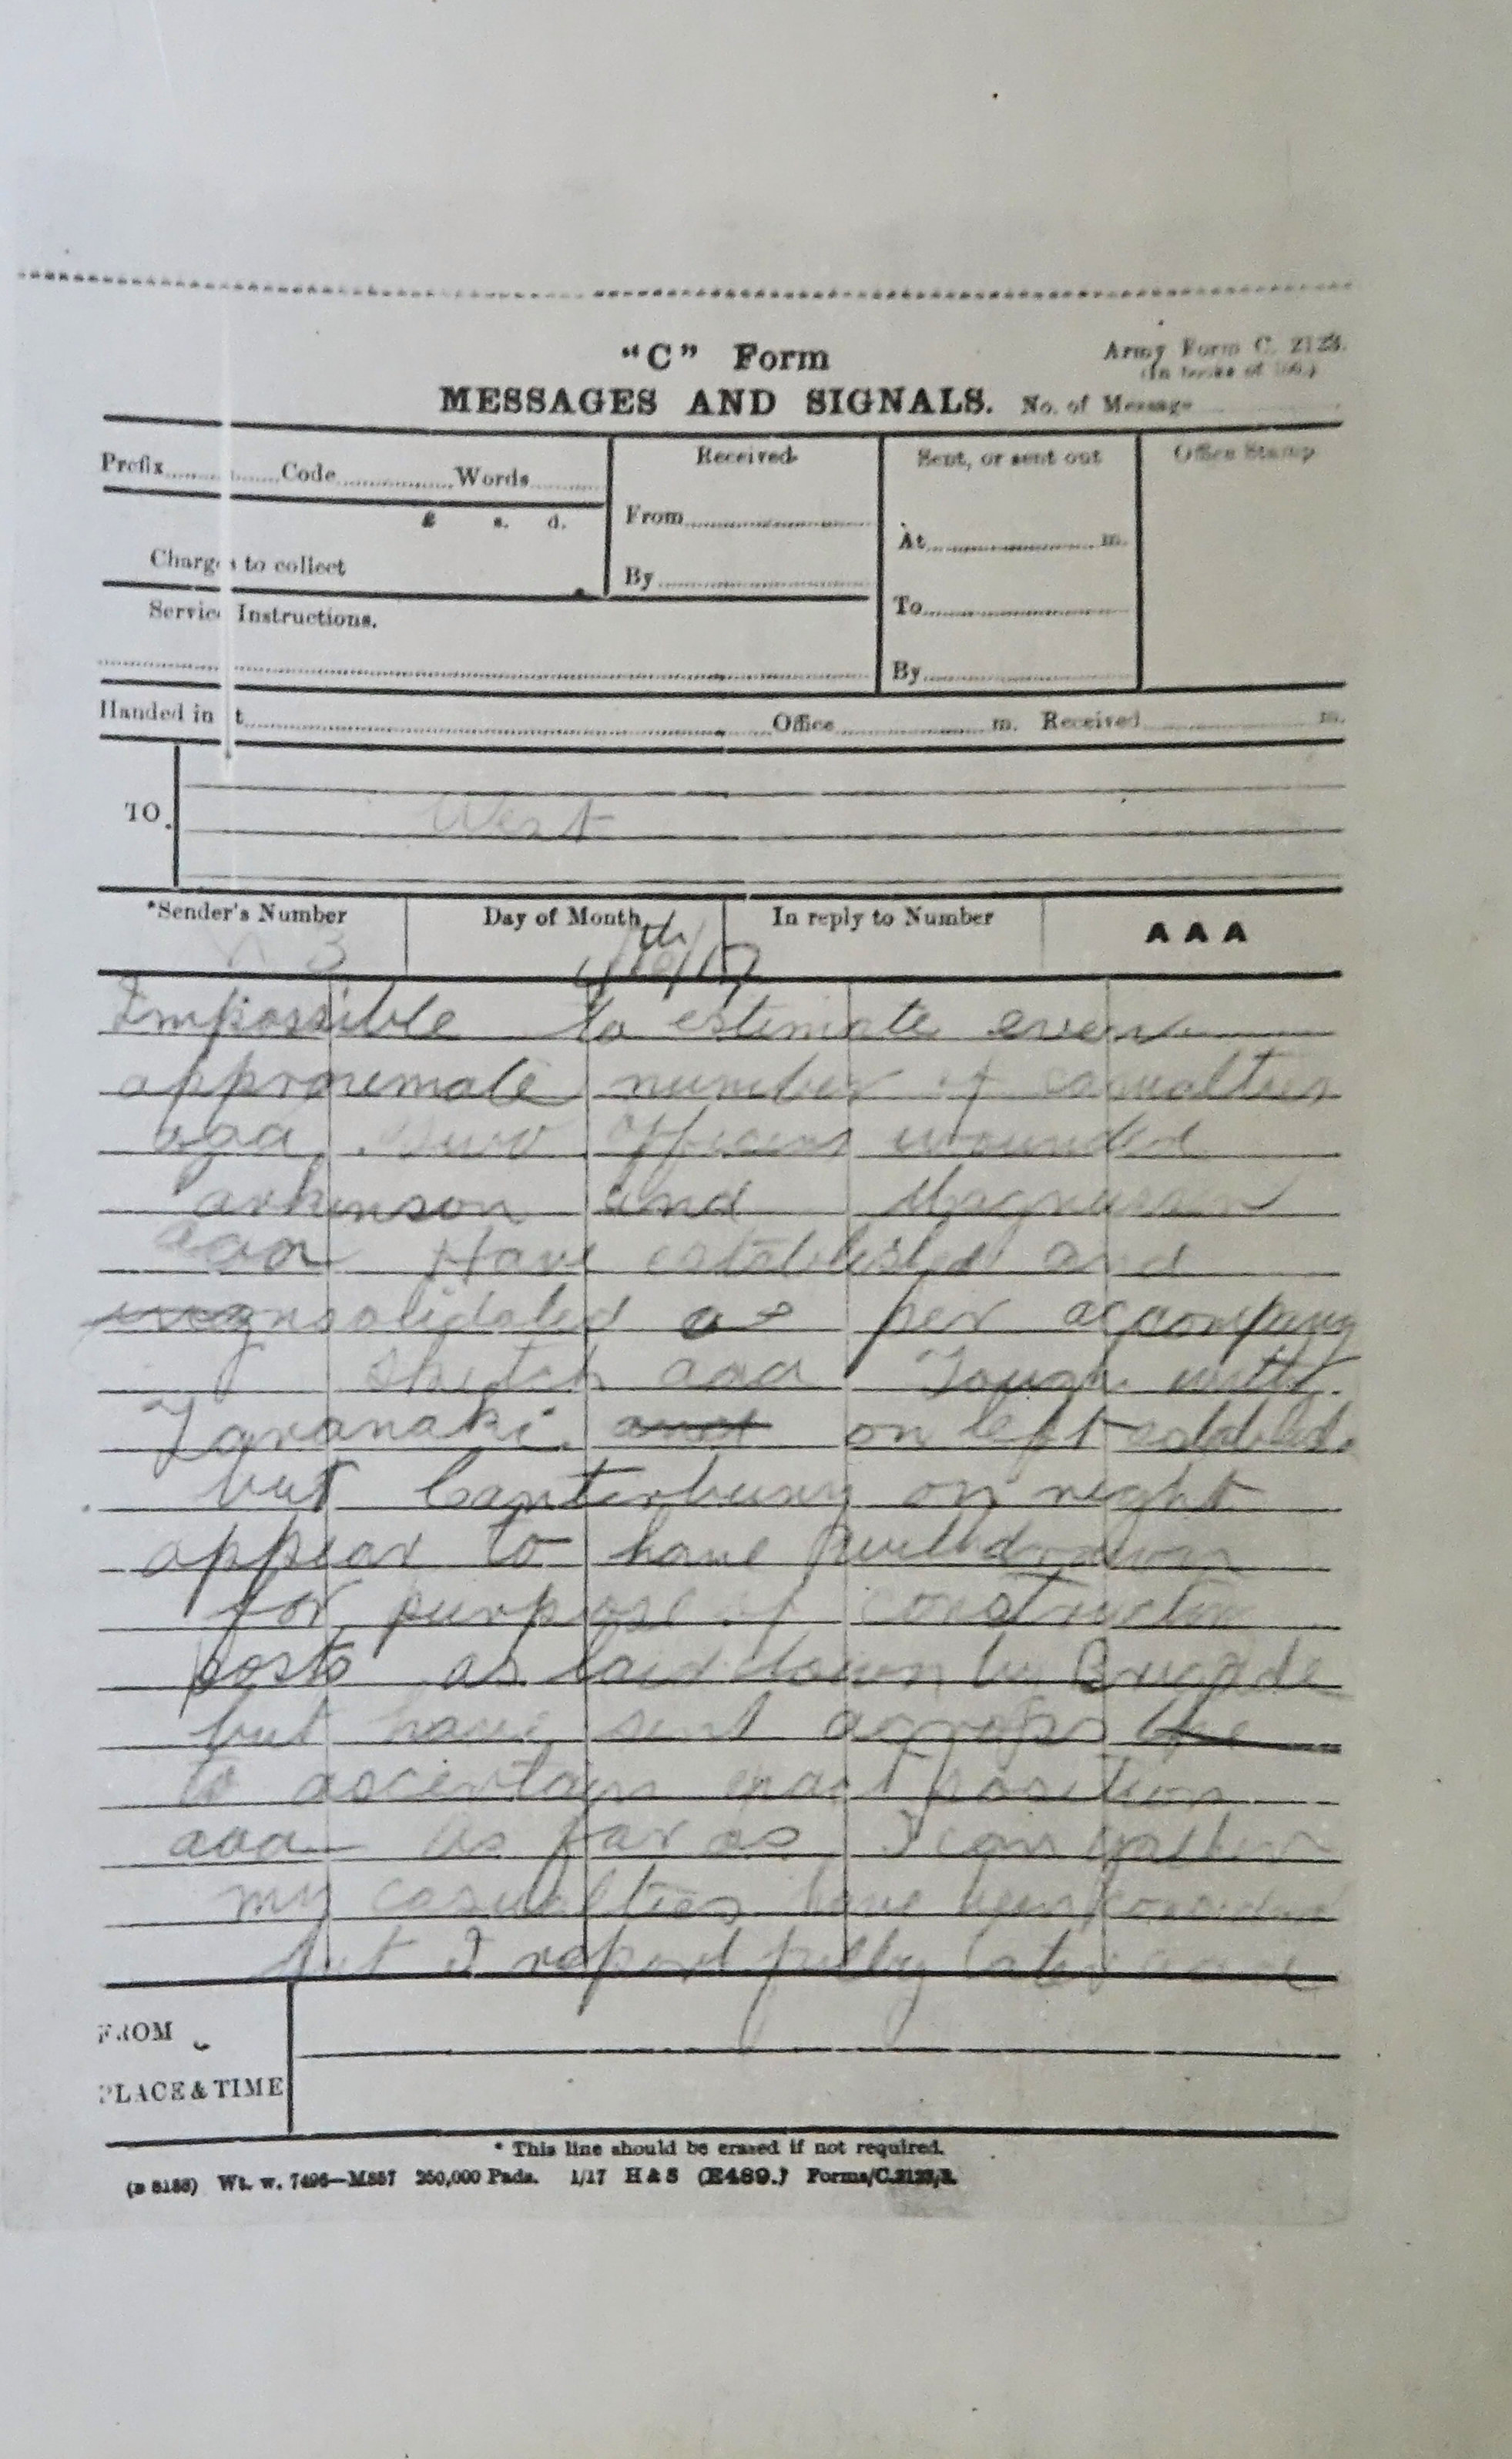 "C" Form
Army Form C. 2123.
(In books of 100.)
MESSAGES AND SIGNALS. No. of Message
Prefix Code Words
Received
Sent, or sent out
Office Stamp
£ s. d.
From
At m.
Charges to collect
By
Service Instructions.
To
By
Handed in t Office m. Received m.
TO
West
*Sender's Number Day of Month In reply to Number AAA
3
Impossible to estimate even
approximate number of casualties
aaa Two officers wounded
and
aaa Have established and
consolidated as per accompany
g sketch aaa Touch with
Taranaki and on left establisd.
but Canterbury on right
appear to have withdrawn
for purpose of construction
posts as laid down by Brigade
but have sent across the
to ascertain exact position
aaa As far as I can gather
my casualties have been
but I report fully later aaa
FROM
PLACE & TIME
* This line should be erased if not required.
(B 8188) Wt. w. 7496—M857 250,000 Pads. 1/17 H & S (E489.) Forms/C.2123/3.